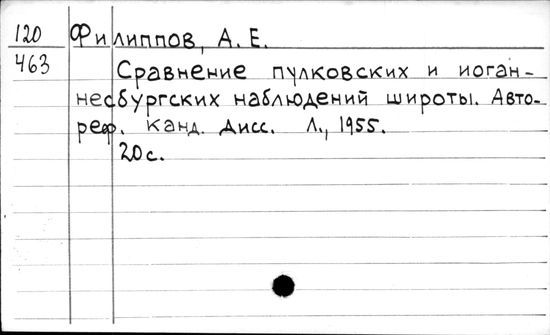 120 Филиппов, А. Е.
463 Сравнение пулковских и иоган-
несбургских наблюдений широты. Авто-
реф. канд. дисс. Л., 1955.
20 с.